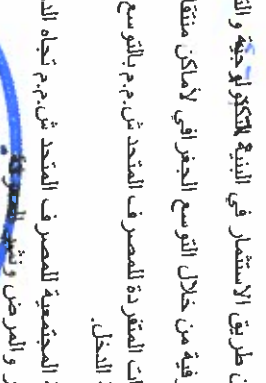 ن طريق الاستثمار في البنية التكنولوجية و
رفية من خلال التوسع الجغرافي لأماكن منتقا
ات المتفردة للمصرف المتحد ش.م.م بالتوسع
الدخل.
المجتمعية للمصرف المتحد ش.م.م تجاه الد
و المرض ونشر المعرفة.